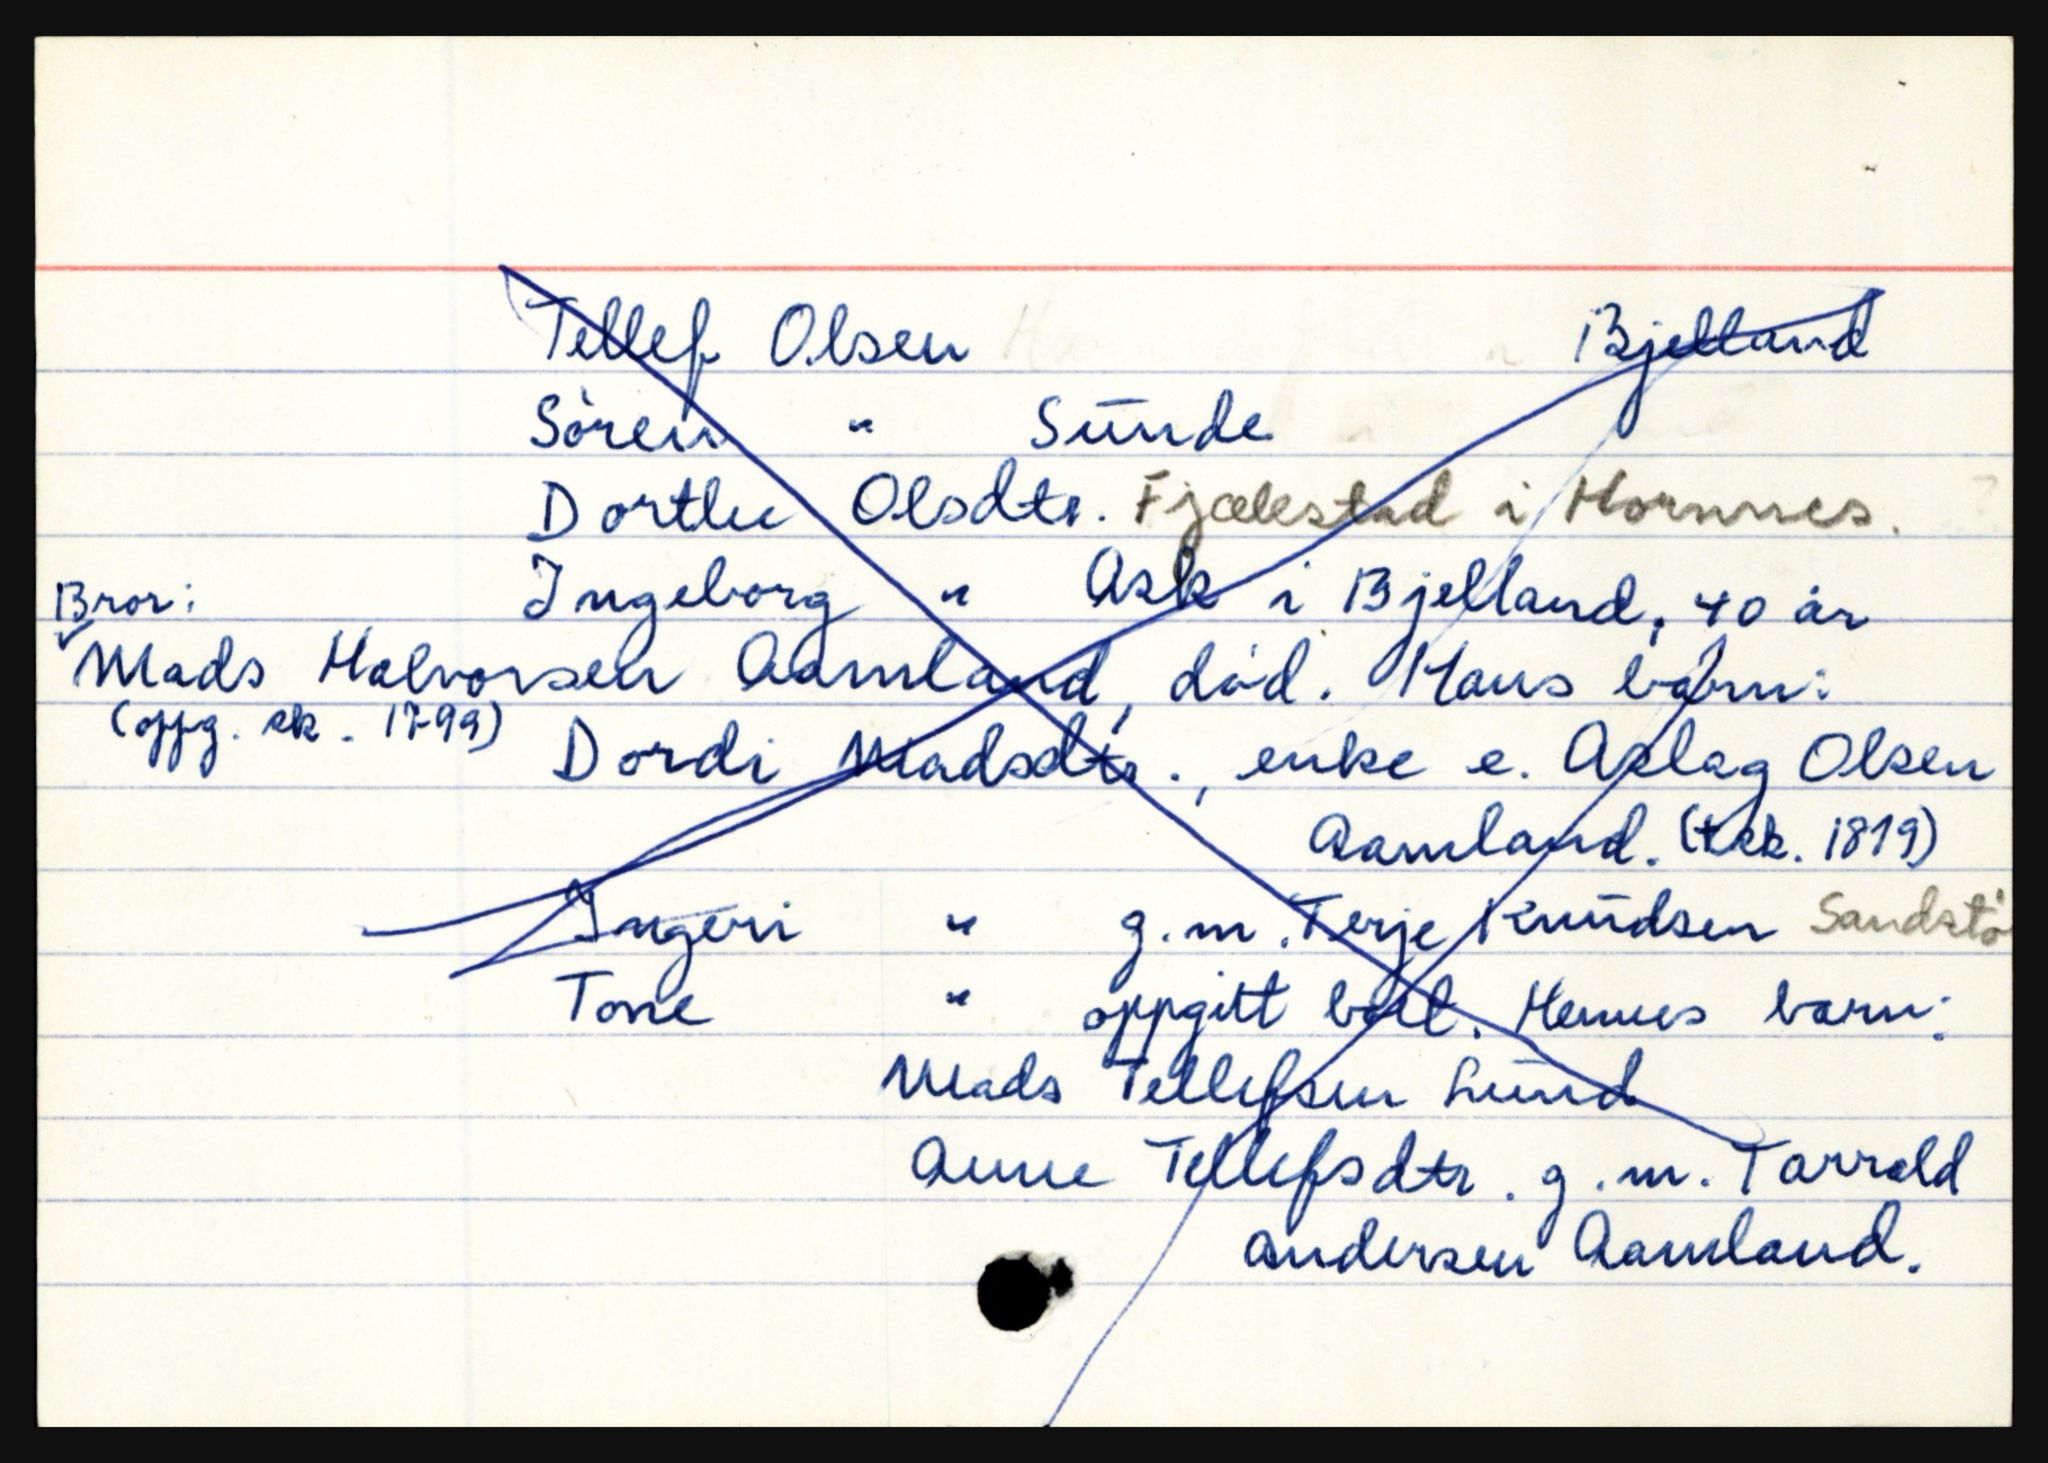 Tellef Olsen Bjelland
Sören " Sunde
Dorthe Olsdtr. Fjælestad i Hornnes.
Ingeborg " Ask i Bjelland, 40 år
Bror:
Mads Halvorsen Aamland, död. Hans børn:
(oppg. sk. 1799) Dordi Madsdtr., enke e. Aslag Olsen
Aamland. (sk. 1819)
Ingeri " g.m. Terje Knudsen Sandstö
Tone " oppgitt boet. Hennes barn:
Mads Tellefsen Lund
Anne Tellefsdtr. g.m. Tarrald
Andersen Aamland.